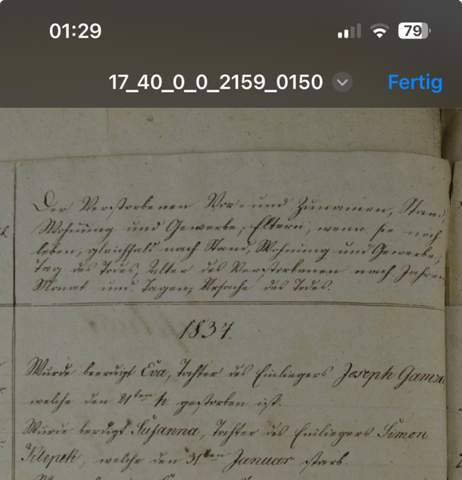 01:29
79
17_40_0_0_2159_0150
Fertig
Der Verstorbenen Vor- und Zunamen, Stand,
Wohnung und Gewerbe, Eltern, wenn sie noch
leben, gleichfalls nach Stand, Wohnung und Gewerbe,
Tag des Todes, Alter des Verstorbenen nach Jahren
Monat und Tagen, Ursache des Todes.
1837.
Wurde beerdigt Eva, Tochter des Einliegers Joseph
welche den gestorben ist.
Wurde Susanna, Tochter des Einliegers Simon
Klepek, welche den 31ten Januar starb.